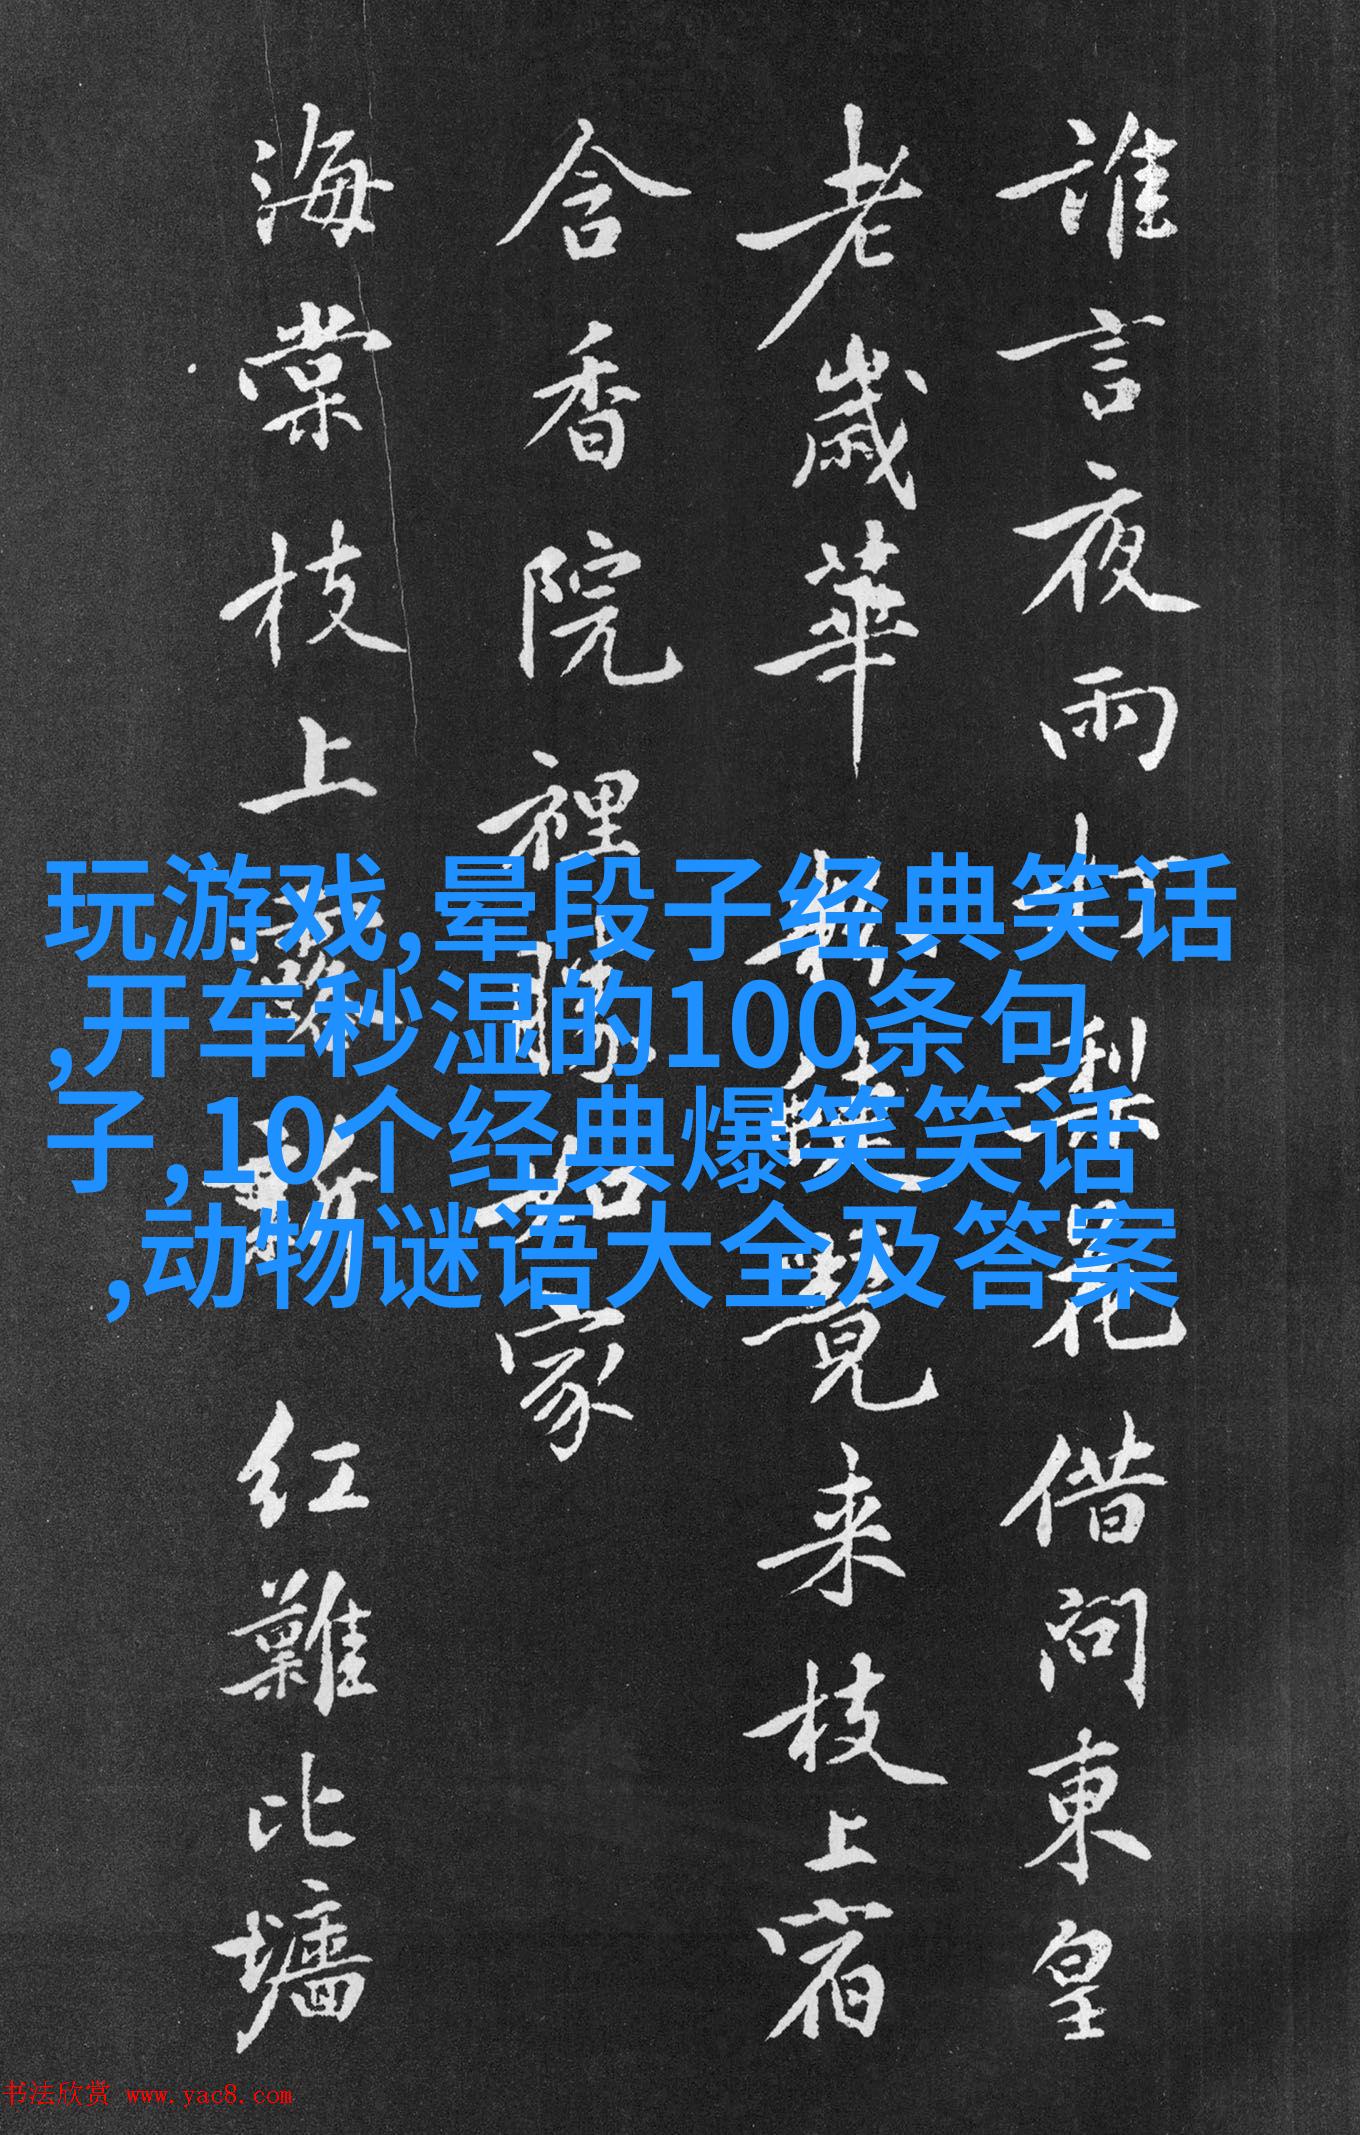 誰言夜雨打梨花借問東皇
老歲華覺来枝上宿
含香院裡家
海棠枝上新红難比墻
玩游戏,晕段子经典笑话
,开车秒湿的100条句
子,10个经典爆笑笑话
,动物谜语大全及答案
书法欣赏 www.yac8.com